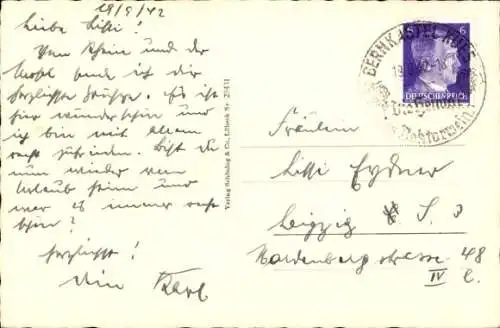 19/9/42
Liebe Lissi!
Vom Rhein und der
Mosel sende ich dir
herzlichste Grüsse. Es ist
hier wunderschön und
ich bin mit allem
recht zufrieden. Bist du
nun wieder vom
Urlaub heim und
war es immer recht
schön?
Herzlichst!
Dein Karl
Verlag Schöning & Co., Lübeck
BERNKASTEL-KUES
6
DEUTSCHES REICH
Doktorwein
Fräulein
Lissi Eydner
Leipzig S. 3
Nordenbergstrasse 48
IV